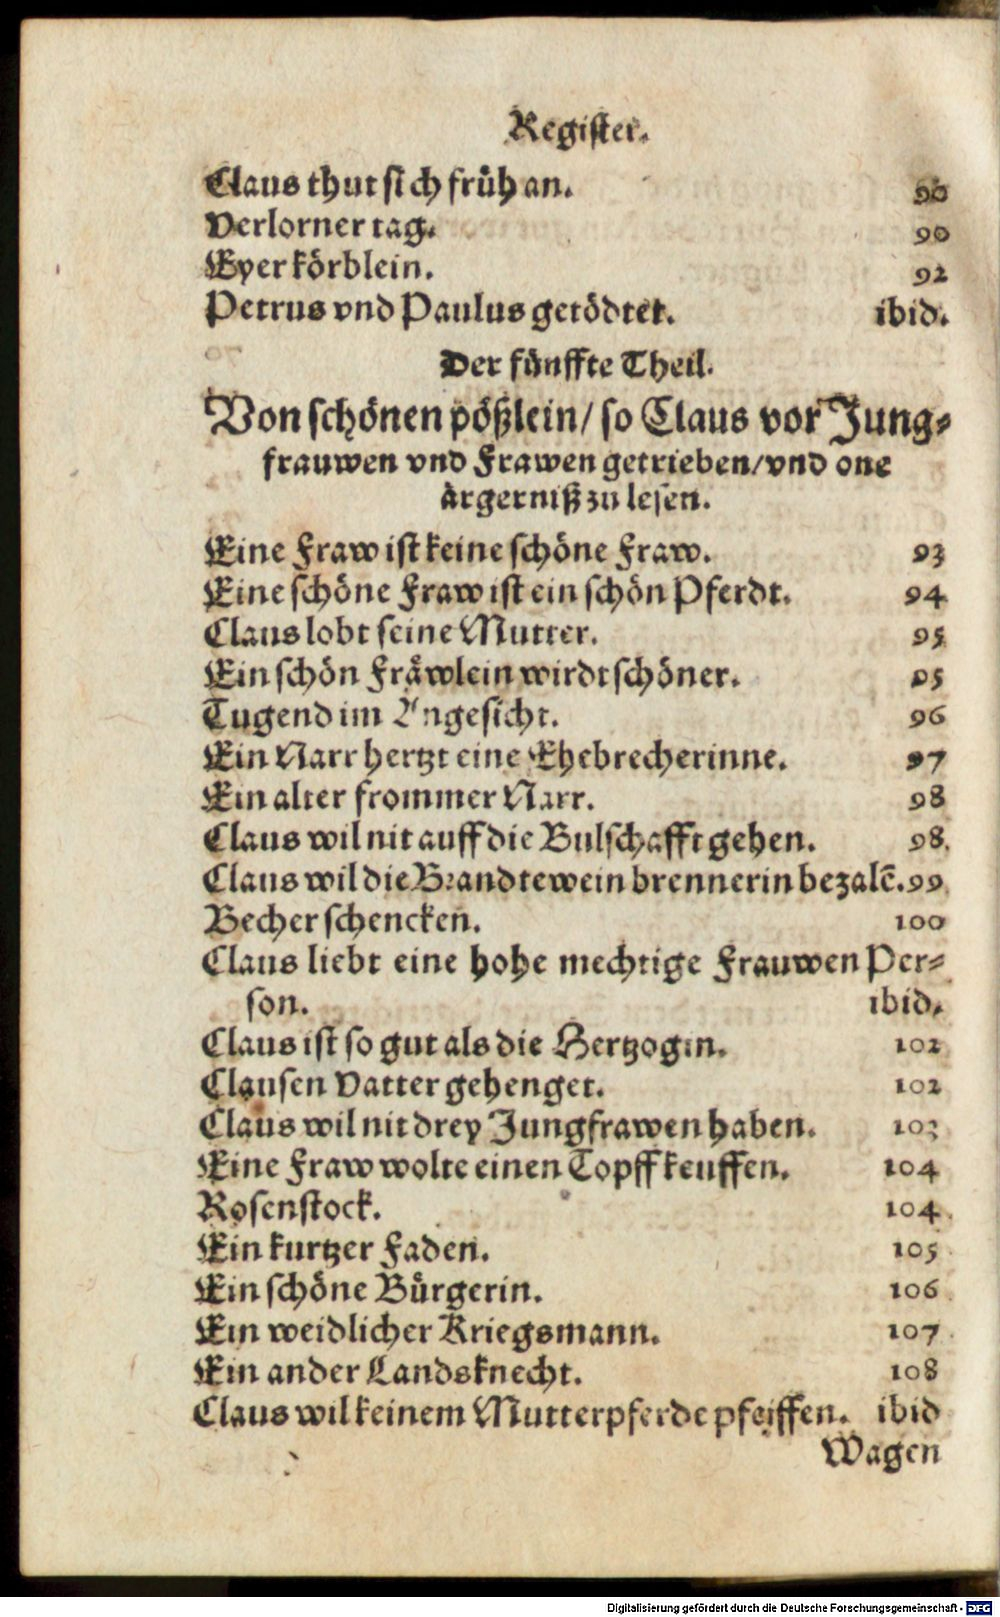 Register.
Claus thut sich früh an. 90
Verlorner tag. 90
Eyer körblein. 92
Petrus vnd Paulus getödtet. ibid.
Der fünffte Theil.
Von schönen pößlein/ so Claus vor Jung-
frauwen vnd Frawen getrieben/vnd one
ärgerniß zu lesen.
Eine Fraw ist keine schöne Fraw. 93
Eine schöne Fraw ist ein schön Pferdt. 94
Claus lobt seine Mutter. 95
Ein schön Fräwlein wirdt schöner. 95
Tugend im Angesicht. 96
Ein Narr hertzt eine Ehebrecherinne. 97
Ein alter frommer Narr. 98
Claus wil nit auff die Bulschafft gehen. 98.
Claus wil die Brandtewein brennerin bezalē. 99
Becher schencken. 100
Claus liebt eine hohe mechtige Frauwen Per-
son. ibid.
Claus ist so gut als die Hertzogin. 102
Clausen Vatter gehenget. 102
Claus wil nit drey Jungfrawen haben. 103
Eine Fraw wolte einen Topff keuffen. 104
Rosenstock. 104.
Ein kurtzer Faden. 105
Ein schöne Bürgerin. 106
Ein weidlicher Kriegsmann. 107
Ein ander Landsknecht. 108
Claus wil keinem Mutterpferde pfeiffen. ibid
Wagen
Digitalisierung gefördert durch die Deutsche Forschungsgemeinschaft - DFG